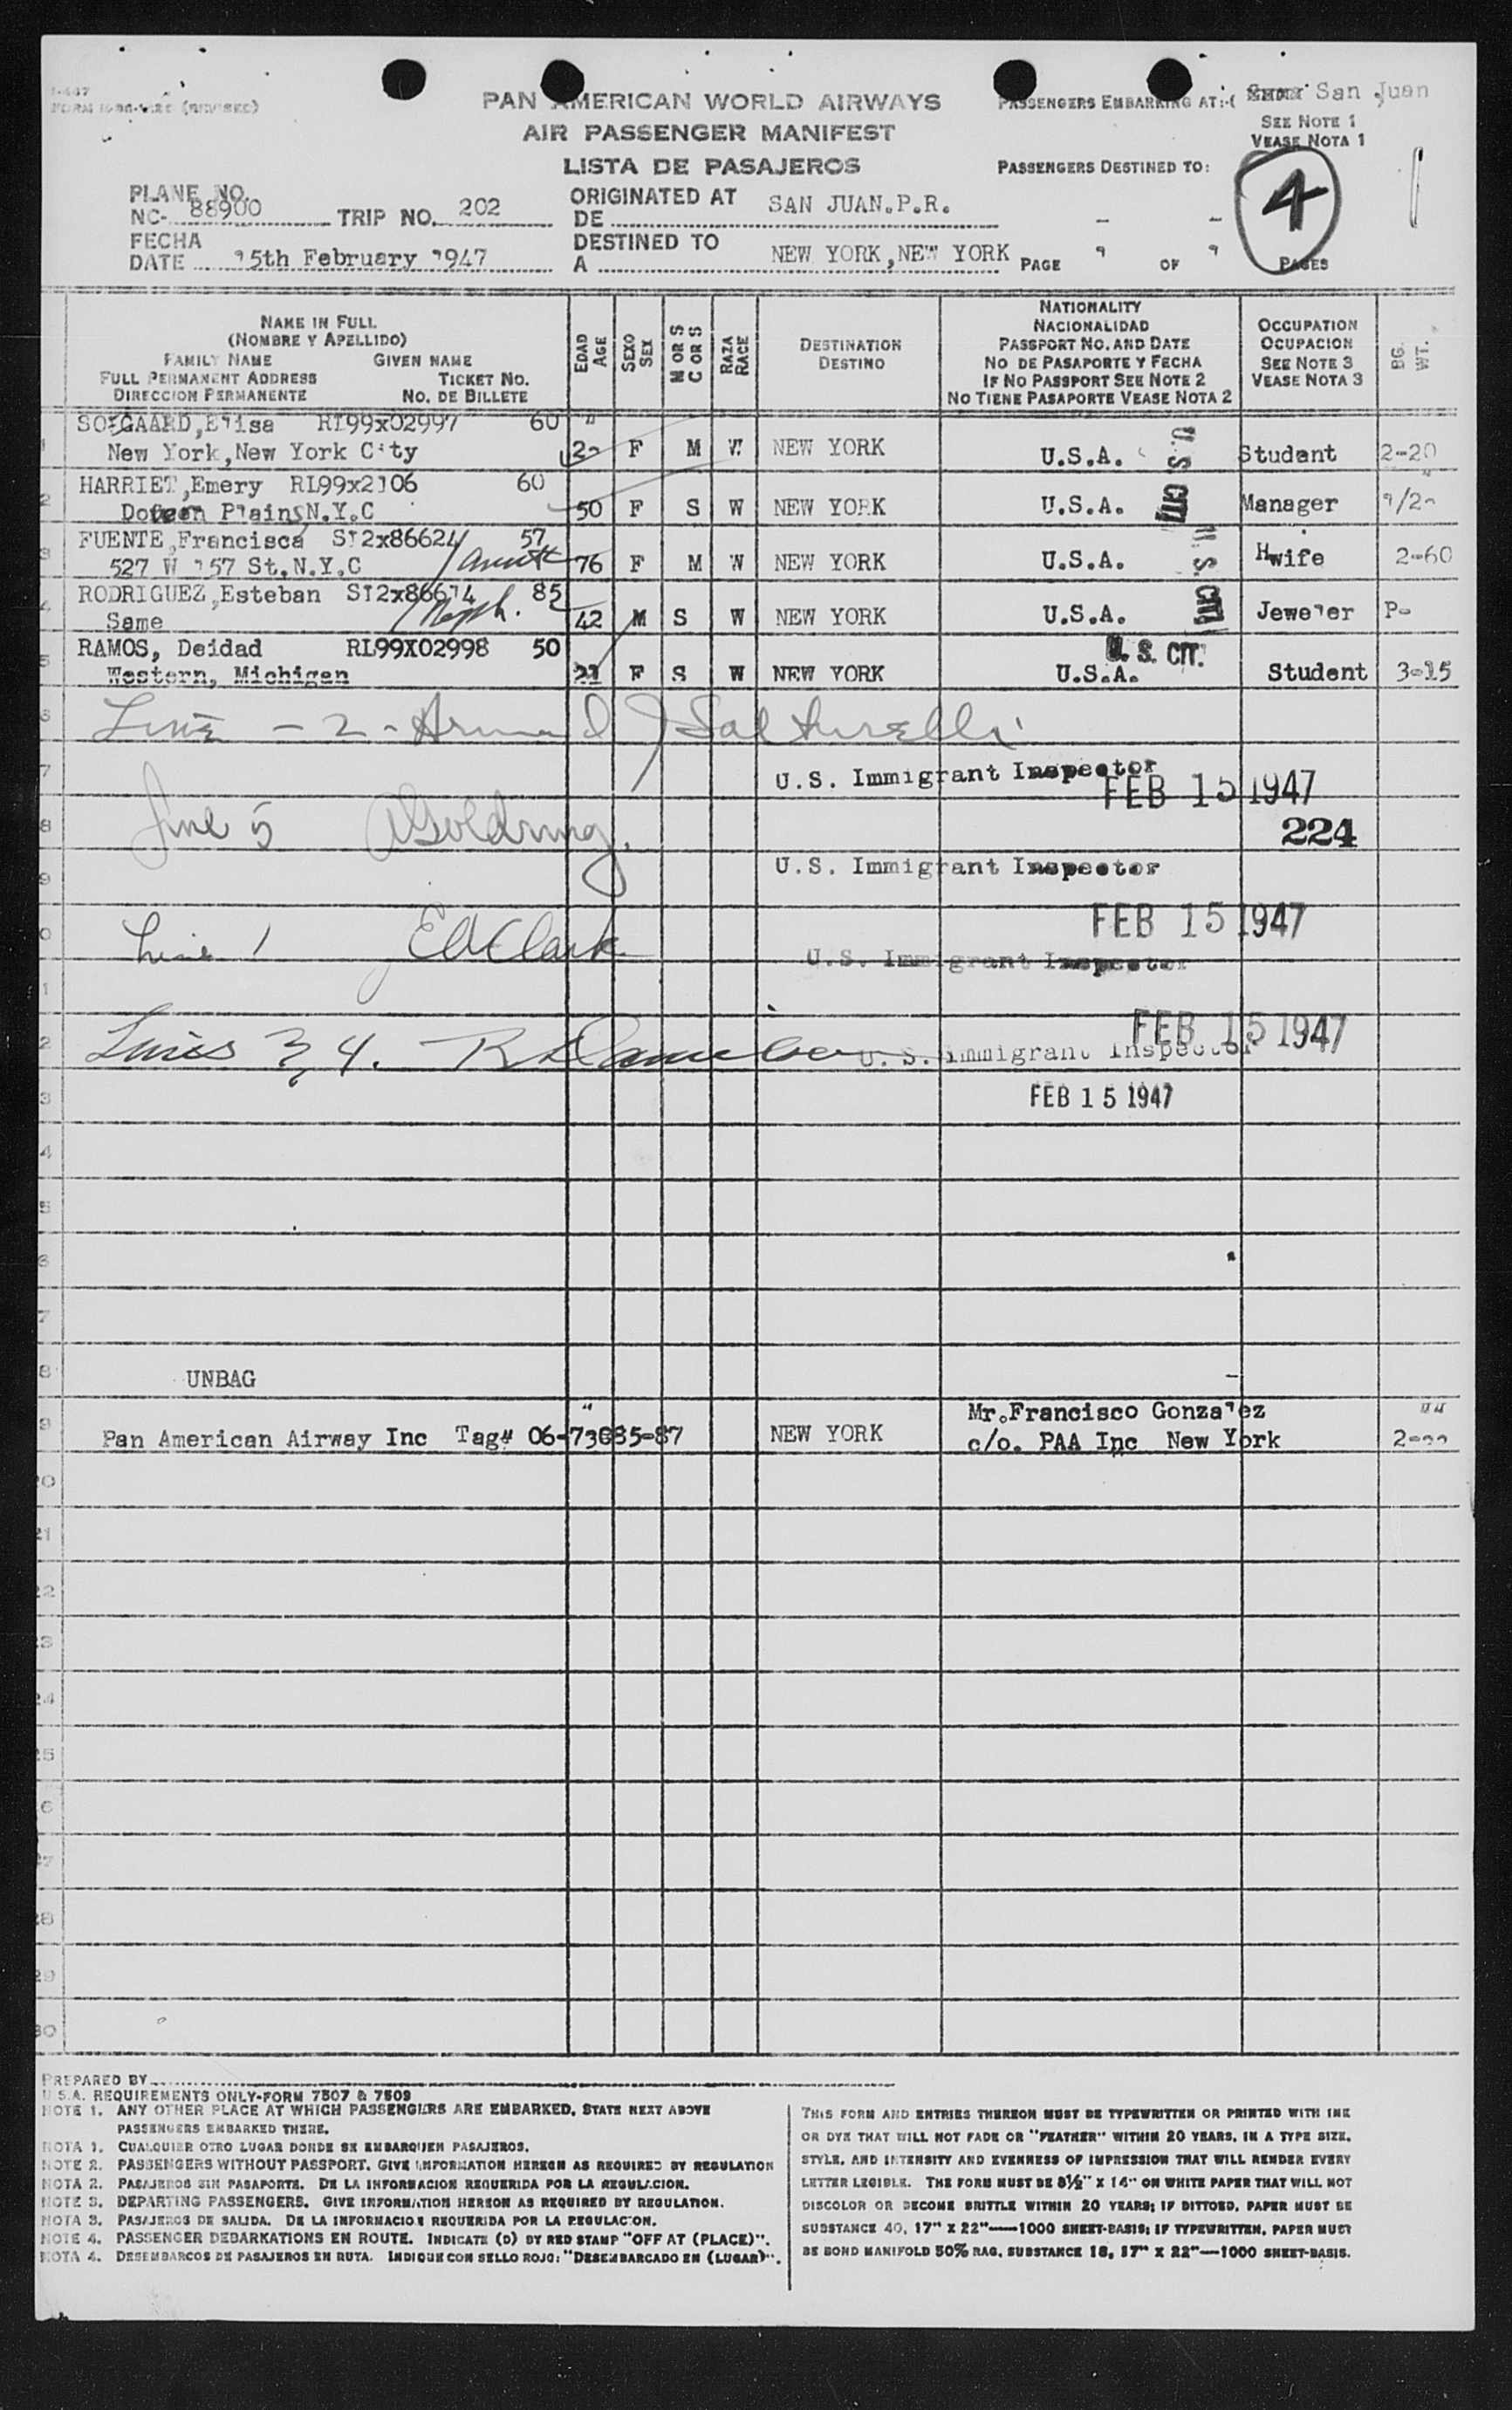 PAN AMERICAN WORLD AIRWAYS
AIR PASSENGER MANIFEST
LISTA DE PASAJEROS
PASSENGERS EMBARKING AT:-( San Juan
SEE NOTE 1
VEASE NOTA 1
PASSENGERS DESTINED TO:
4
PLANE NO.
NC- 88900 TRIP NO. 202
ORIGINATED AT SAN JUAN.P.R.
DE
FECHA
DATE 15th February 1947
DESTINED TO
A NEW YORK,NEW YORK
PAGE 1 OF 1 PAGES
NAME IN FULL
(NOMBRE Y APELLIDO)
FAMILY NAME GIVEN NAME
FULL PERMANENT ADDRESS TICKET NO.
DIRECCION PERMANENTE NO. DE BILLETE
EDAD AGE
SEXO SEX
M OR S C OR S
RAZA RACE
DESTINATION
DESTINO
NATIONALITY
NACIONALIDAD
PASSPORT NO. AND DATE
NO DE PASAPORTE Y FECHA
IF NO PASSPORT SEE NOTE 2
NO TIENE PASAPORTE VEASE NOTA 2
OCCUPATION
OCUPACION
SEE NOTE 3
VEASE NOTA 3
BG. WT.
SOEGAARD,Elisa RI99x02997 60
New York,New York City F M W NEW YORK U.S.A. U.S. CIT. Student 2-20
HARRIET,Emery RL99x2106 60
Plains N.Y.C 50 F S W NEW YORK U.S.A. Manager
FUENTE,Francisca ST2x86624 57
527 W 157 St.N.Y.C 76 F M W NEW YORK U.S.A. U.S. CIT. Hwife 2-60
RODRIGUEZ,Esteban ST2x86614 85
Same 42 M S W NEW YORK U.S.A. Jeweler P-
RAMOS, Deidad RL99X02998 50
Western, Michigan 21 F S W NEW YORK U.S.A. U.S. CIT. Student 3-15
Line - 2 -
U.S. Immigrant Inspector
FEB 15 1947
224
Line 5 Goldring
U.S. Immigrant Inspector
FEB 15 1947
Line 1 EAClark
U.S. Immigrant Inspector
FEB 15 1947
Lines 3, 4.
U.S. Immigrant Inspector
FEB 15 1947
UNBAG
Pan American Airway Inc Tag# 06-73085-87 NEW YORK
Mr.Francisco Gonzalez
c/o. PAA Inc New York
PREPARED BY
U.S.A. REQUIREMENTS ONLY-FORM 7507 & 7509
NOTE 1. ANY OTHER PLACE AT WHICH PASSENGERS ARE EMBARKED, STATE NEXT ABOVE
PASSENGERS EMBARKED THERE.
NOTA 1. CUALQUIER OTRO LUGAR DONDE SE EMBARQUEN PASAJEROS.
NOTE 2. PASSENGERS WITHOUT PASSPORT. GIVE INFORMATION HEREON AS REQUIRED BY REGULATION
NOTA 2. PASAJEROS SIN PASAPORTE. DE LA INFORMACION REQUERIDA POR LA REGULACION.
NOTE 3. DEPARTING PASSENGERS. GIVE INFORMATION HEREON AS REQUIRED BY REGULATION.
NOTA 3. PASAJEROS DE SALIDA. DE LA INFORMACION REQUERIDA POR LA REGULACION.
NOTE 4. PASSENGER DEBARKATIONS EN ROUTE. INDICATE (D) BY RED STAMP "OFF AT (PLACE)".
NOTA 4. DESEMBARCOS DE PASAJEROS EN RUTA. INDIQUE CON SELLO ROJO: "DESEMBARCADO EN (LUGAR)".
THIS FORM AND ENTRIES THEREON MUST BE TYPEWRITTEN OR PRINTED WITH INK
OR DYE THAT WILL NOT FADE OR "FEATHER" WITHIN 20 YEARS, IN A TYPE SIZE,
STYLE, AND INTENSITY AND EVENNESS OF IMPRESSION THAT WILL RENDER EVERY
LETTER LEGIBLE. THE FORM MUST BE 8½" X 14" ON WHITE PAPER THAT WILL NOT
DISCOLOR OR BECOME BRITTLE WITHIN 20 YEARS; IF DITTOED, PAPER MUST BE
SUBSTANCE 40, 17" X 22"—1000 SHEET-BASIS; IF TYPEWRITTEN, PAPER MUST
BE BOND MANIFOLD 50% RAG, SUBSTANCE 18, 17" X 22"—1000 SHEET-BASIS.